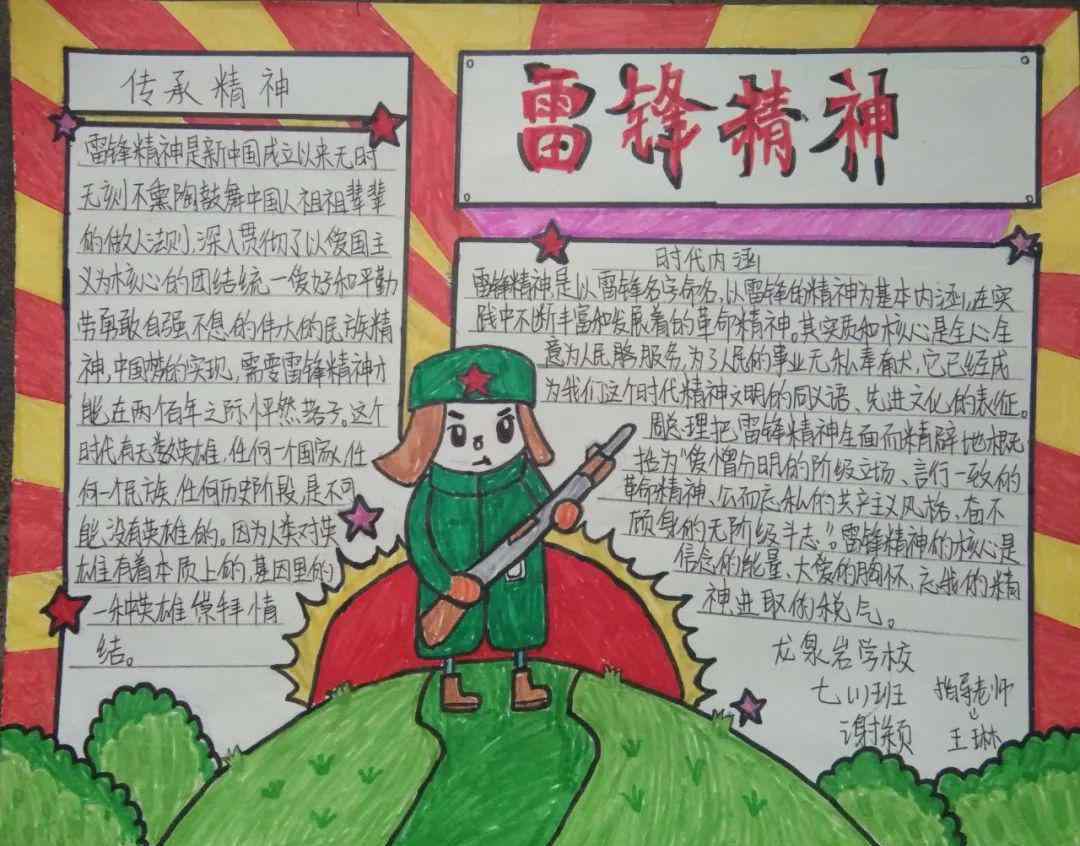 传承精神
雷锋精神是新中国成立以来无时
无刻不熏陶鼓舞中国人祖祖辈辈
的做人法则,深入贯彻了以爱国主
义为核心的团结统一爱好和平勤
劳勇敢自强不息的伟大的民族精
神,中国梦的实现,需要雷锋精神才
能在两个百年之际怦然落子。这个
时代有无数英雄,任何一个国家,任
何一个民族,任何历史阶段,是不可
能没有英雄的。因为人类对英
雄有着本质上的,基因里的
一种英雄崇拜情
结。
雷锋精神
时代内涵
雷锋精神,是以雷锋名字命名,以雷锋的精神为基本内涵,在实
践中不断丰富和发展着的革命精神。其实质和核心是全心全
意为人民服务,为了人民的事业无私奉献,它已经成
为我们这个时代精神文明的同义语、先进文化的表征。
周总理把雷锋精神全面而精辟地概
括为“爱憎分明的阶级立场、言行一致的
革命精神、公而忘私的共产主义风格、奋不
顾身的无阶级斗志”。雷锋精神的核心是
信念的能量、大爱的胸怀、忘我的精
神进取的锐气。
龙泉岩学校
七(1)班 指导老师:
谢颖 王琳